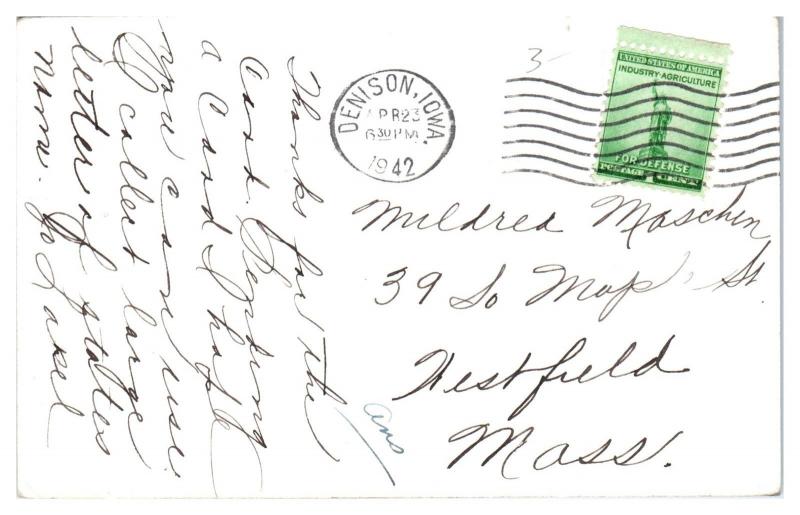 Thanks for the
Card. Sending
a Card I hope
you can use.
I collect large
letters of states
name.
3-
DENISON, IOWA.
APR 23
6 30 PM
1942
UNITED STATES OF AMERICA
INDUSTRY-AGRICULTURE
FOR DEFENSE
POSTAGE
Mildred Maschin
39 So Map. St
Westfield
Mass.
ans